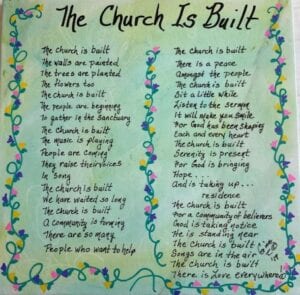 The Church Is Built
The church is built
The walls are painted
The trees are planted
The flowers too
The church is built
The people are beginning
To gather in the Sanctuary
The Church is built
The music is playing
People are coming
They raise their voices
In Song
The church is built
We have waited so long
The Church is built
A Community is forming
There are so many
People who want to help
The Church is built
There is a peace
Amongst the people
The church is built
Sit a little while
Listen to the sermon
It will make you smile
For God has been shaping
Each and every heart
The Church is built
Serenity is present
For God is bringing
Hope...
And is taking up...
residence
The Church is built
For a community of believers
God is taking notice
He is standing near
The Church is built
Songs are in the air
The Church is built
There is Love everywhere!